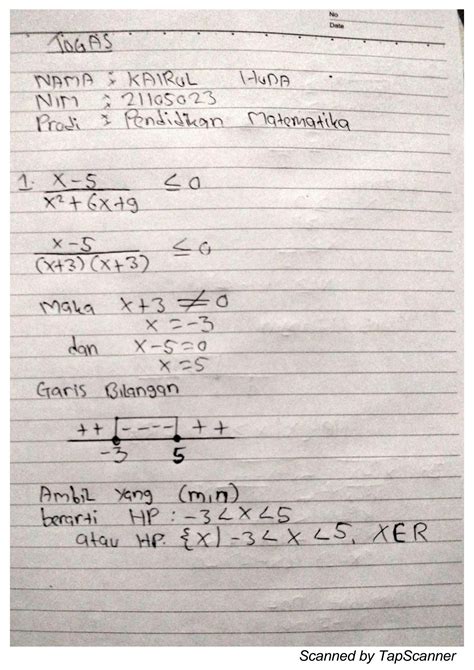 No
Date
TUGAS
NAMA : KAIRUL HUDA
NIM : 21105023
Prodi : Pendidikan Matematika
1. x-5 / x²+6x+9 ≤ 0
x-5 / (x+3)(x+3) ≤ 0
Maka x+3 ≠ 0
x = -3
dan x-5=0
x=5
Garis Bilangan
++ ---- ++
-3 5
Ambil yang (min)
berarti HP : -3<x<5
atau HP. {x|-3<x<5, XER
Scanned by TapScanner